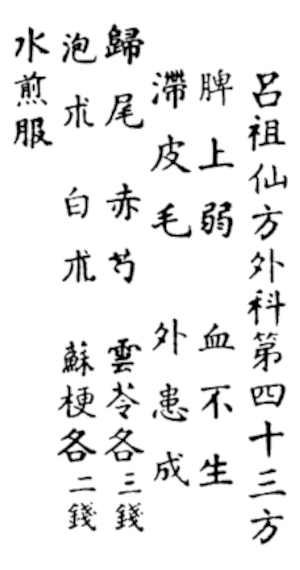 呂祖仙方外科第四十三方
脾上弱 血不生
滯皮毛 外患成
歸尾 赤芍 雲苓各三錢
泡朮 白朮 蘇梗各二錢
水煎服